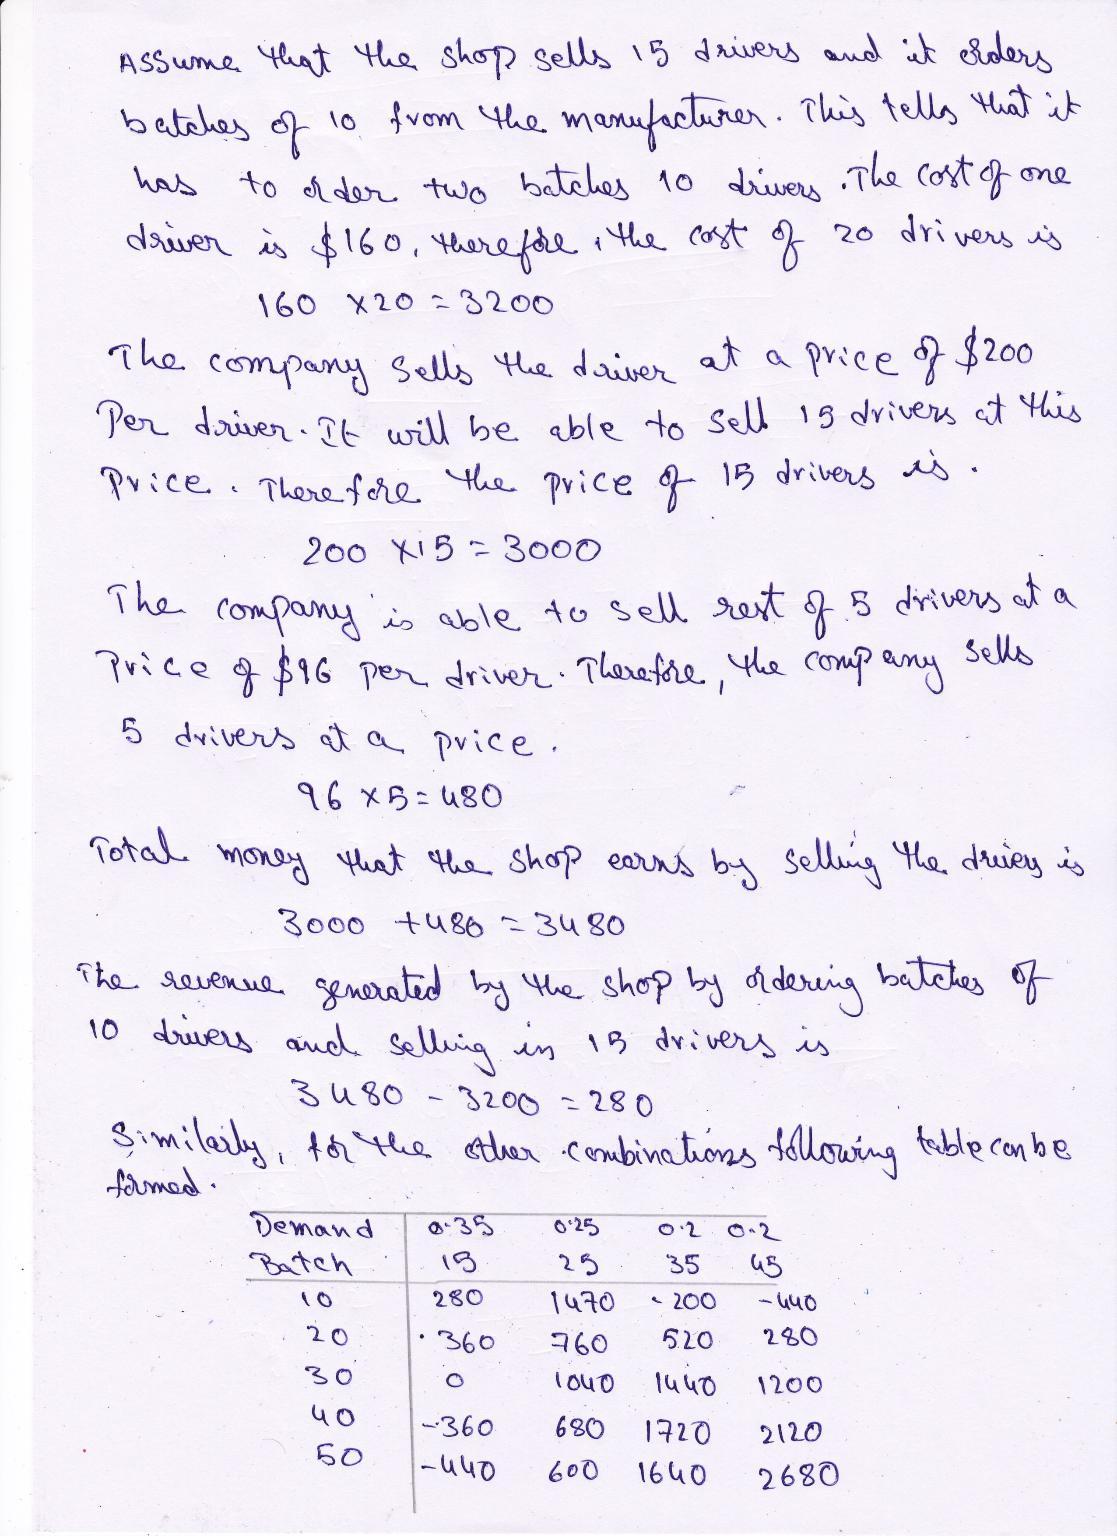 Assume that the shop sells 15 drivers and it orders
batches of 10 from the manufacturer. This tells that it
has to order two batches 10 drivers. The cost of one
driver is $160, therefore, the cost of 20 drivers is
160 × 20 = 3200
The company sells the driver at a price of $200
Per driver. It will be able to sell 15 drivers at this
Price. Therefore the price of 15 drivers is.
200 × 15 = 3000
The company is able to sell rest of 5 drivers at a
Price of $96 per driver. Therefore, the company sells
5 drivers at a price.
96 × 5 = 480
Total money that the shop earns by selling the drivers is
3000 + 480 = 3480
The revenue generated by the shop by ordering batches of
10 drivers and selling in 15 drivers is
3480 - 3200 = 280
Similarly, for the other combinations following table can be
formed.
Demand 0.35 0.25 0.2 0.2
Batch 15 25 35 45
10 280 1470 -200 -440
20 360 760 520 280
30 0 1040 1440 1200
40 -360 680 1720 2120
50 -440 600 1640 2680